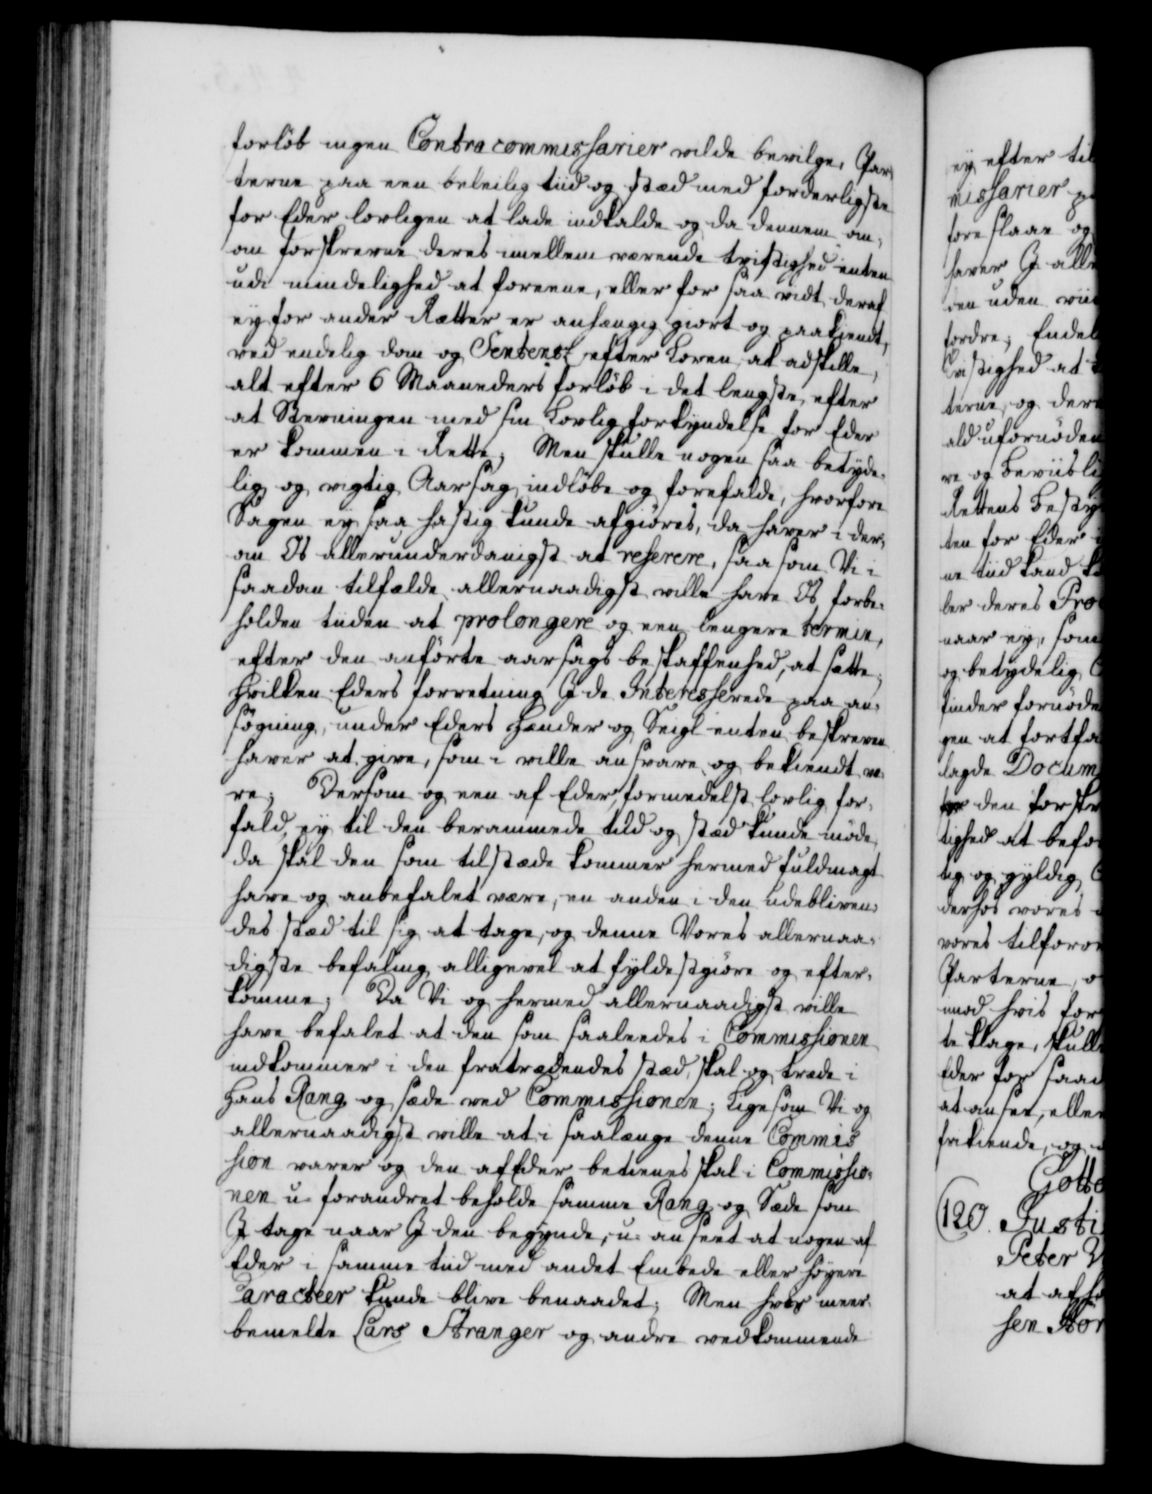 forløb ingen Contracommissarier vilde bevilge, Par¬
terne paa een beleilig tiid og stæd med forderligste
for Eder lovligen at lade indkalde og da dennem om,
om forskrevne deres imellem værende tvistighed enten
udi mindelighed at foreene, eller for saa vidt deraf
ey for andre Rætter er anhængig giort og paakiendt,
ved endelig dom og Sentenz efter Loven at adskille,
alt efter 6 Maaneders forløb i det lengste, efter
at Stevningen med sin Lovlig forkyndelse for Eder
er kommen i Rette; Men skulle nogen saa betyde¬
lig og vigtig Aarsag indløbe og forefalde, hvorfore
Sagen ey saa hastig kunde afgiøres, da haver i der¬
om Os allerunderdanigst at referere, saasom Vi i
saadan tilfælde allernaadigst ville have Os forbe¬
holden tiiden at prolongere og een lengere termin,
efter den anførte aarsags beskaffenhed, at sætte;
Hvilken Eders forretning I de Interesserede paa an¬
søgning, under Eders Hænder og Seigl enten beskreven
haver at give, som i ville ansvare og bekiendt væ¬
re; Dersom og een af Eder, formedelst lovlig for¬
fald, ey til den berammede tiid og stæd kunde møde,
da skal den som tilstæde kommer hermed fuldmagt
have og anbefalet være, en anden i den udebliven¬
des stæd til sig at tage, og denne Vores allernaa¬
digste befaling alligevel at fyldestgiøre og efter¬
komme; Da Vi og hermed allernaadigst ville
have befalet at den som saaleedes i Commissionen
indkommer i den fratrædendes stæd, skal og træde i
Hans Rang og sæde ved Commissionen; Ligesom Vi og
allernaadigst ville at i saalænge denne Commis
sion varer og den af Eder betienes skal i Commissio¬
nen u-forandret beholde samme Rang og Sæde som
I tage naar I den begynde, u-anseet at nogen af
Eder i samme tiid med andet Embede eller høyere
Caracteer kunde blive benaadet; Men hvis meer¬
bemelte Lars Stranger og andre vedkommende
ey efter til
missarier
foreslaae og
haver I alle
den uden
fordre; Endel
tvistighed at
terne, og der
ald ufornøden
re og beviislig
Rettens Besty
ten for Eder i
ne tiid kand
ler deres Pro
naar ey, som
og betydelig
finder fornøde
gen at fortfa
lagde Docum
den forskr
tighed at befor
lig og gyldig
derhos vores
vores tilforor
Parterne, o
imod hvis for
te klage, skulle
Eder for saad
at ansee, eller
frikiende, og
Gotto
120. Justi
Peter
at afho
sen